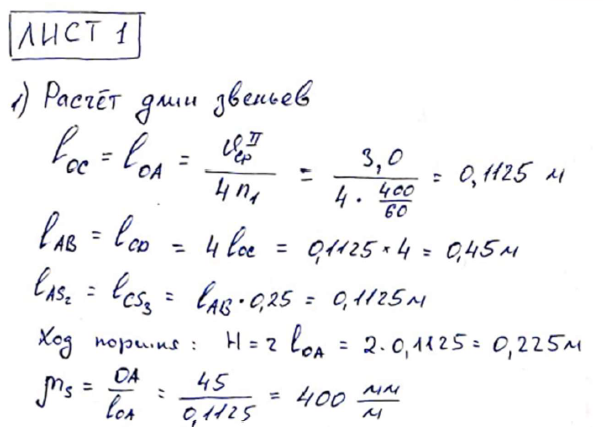 ЛИСТ 1
1) Расчёт длин звеньев
l_OC = l_OA = ϑ_ср^II / (4 n_1) = 3,0 / (4 · 400/60) = 0,1125 м
l_AB = l_CD = 4 l_OC = 0,1125 * 4 = 0,45 м
l_AS₂ = l_CS₃ = l_AB · 0,25 = 0,1125 м
Ход поршня: H = 2 l_OA = 2 · 0,1125 = 0,225 м
μ_s = OA / l_OA = 45 / 0,1125 = 400 мм/м